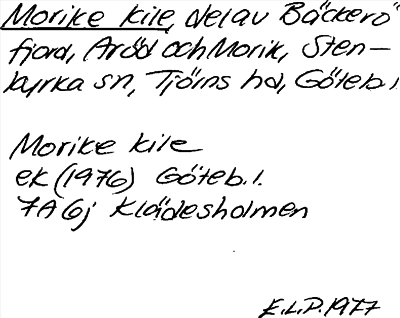 Morike kile, del av Bäckerö
fjord, Aröd och Morik, Sten-
kyrka sn, Tjörns hd, Göteb. l.
Morike kile
ek (1976) Göteb. l.
7A 6j Klädesholmen
E.L.P. 1977